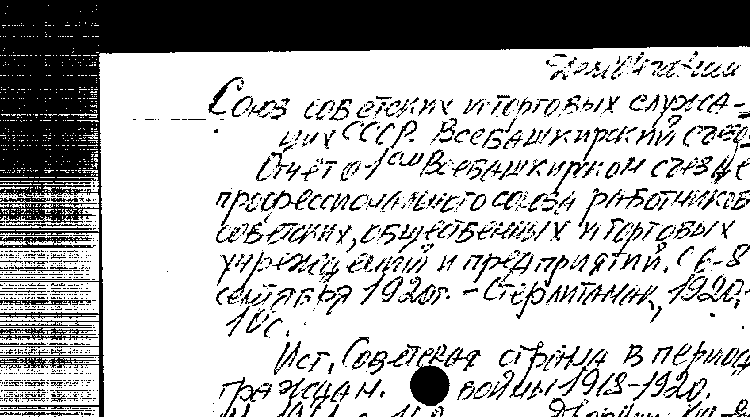 Союз советских и торговых служа-
щих СССР. Всебашкирский съезд
Отчет о 1ом Всебашкирском съезде
профессионального союза работников
советских, общественных и торговых
учреждений и предприятий. С 6-8
сентября 1920г. - Стерлитамак, 1920.-
10с.
Ист. Советская страна в период
граждан. войны 1918-1920.